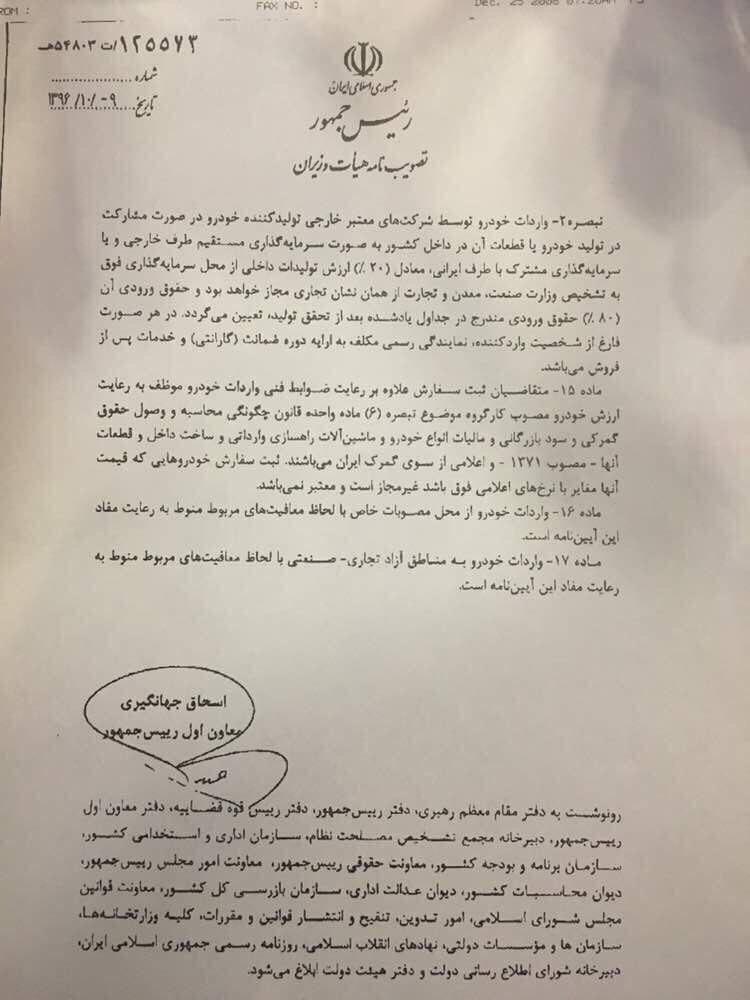 ROM :
FAX NO. :
Dec. 25 2008 07:20AM P3
۱۲۵۵۷۳/ت۵۴۸۰۳هـ
شماره
تاریخ ۱۳۹۶/۱۰/۰۹
جمهوری اسلامی ایران
رئیس جمهور
تصویب نامه هیأت وزیران
تبصره۲- واردات خودرو توسط شرکت‌های معتبر خارجی تولیدکننده خودرو در صورت مشارکت
در تولید خودرو یا قطعات آن در داخل کشور به صورت سرمایه‌گذاری مستقیم طرف خارجی و یا
سرمایه‌گذاری مشترک با طرف ایرانی، معادل (۲۰ ٪) ارزش تولیدات داخلی از محل سرمایه‌گذاری فوق
به تشخیص وزارت صنعت، معدن و تجارت از همان نشان تجاری مجاز خواهد بود و حقوق ورودی آن
(۸۰ ٪) حقوق ورودی مندرج در جداول یادشده بعد از تحقق تولید، تعیین می‌گردد. در هر صورت
فارغ از شخصیت واردکننده، نمایندگی رسمی مکلف به ارایه دوره ضمانت (گارانتی) و خدمات پس از
فروش می‌باشد.
ماده ۱۵- متقاضیان ثبت سفارش علاوه بر رعایت ضوابط فنی واردات خودرو موظف به رعایت
ارزش خودرو مصوب کارگروه موضوع تبصره (۶) ماده واحده قانون چگونگی محاسبه و وصول حقوق
گمرکی و سود بازرگانی و مالیات انواع خودرو و ماشین‌آلات راهسازی وارداتی و ساخت داخل و قطعات
آنها - مصوب ۱۳۷۱ - و اعلامی از سوی گمرک ایران می‌باشند. ثبت سفارش خودروهایی که قیمت
آنها مغایر با نرخ‌های اعلامی فوق باشد غیرمجاز است و معتبر نمی‌باشد.
ماده ۱۶- واردات خودرو از محل مصوبات خاص با لحاظ معافیت‌های مربوط منوط به رعایت مفاد
این آیین‌نامه است.
ماده ۱۷- واردات خودرو به مناطق آزاد تجاری- صنعتی با لحاظ معافیت‌های مربوط منوط به
رعایت مفاد این آیین‌نامه است.
اسحاق جهانگیری
معاون اول رییس‌جمهور
رونوشت به دفتر مقام معظم رهبری، دفتر رییس‌جمهور، دفتر رییس قوه قضاییه، دفتر معاون اول
رییس‌جمهور، دبیرخانه مجمع تشخیص مصلحت نظام، سازمان اداری و استخدامی کشور،
سازمان برنامه و بودجه کشور، معاونت حقوقی رییس‌جمهور، معاونت امور مجلس رییس‌جمهور،
دیوان محاسبات کشور، دیوان عدالت اداری، سازمان بازرسی کل کشور، معاونت قوانین
مجلس شورای اسلامی، امور تدوین، تنقیح و انتشار قوانین و مقررات، کلیه وزارتخانه‌ها،
سازمان ها و مؤسسات دولتی، نهادهای انقلاب اسلامی، روزنامه رسمی جمهوری اسلامی ایران،
دبیرخانه شورای اطلاع رسانی دولت و دفتر هیئت دولت ابلاغ می‌شود.